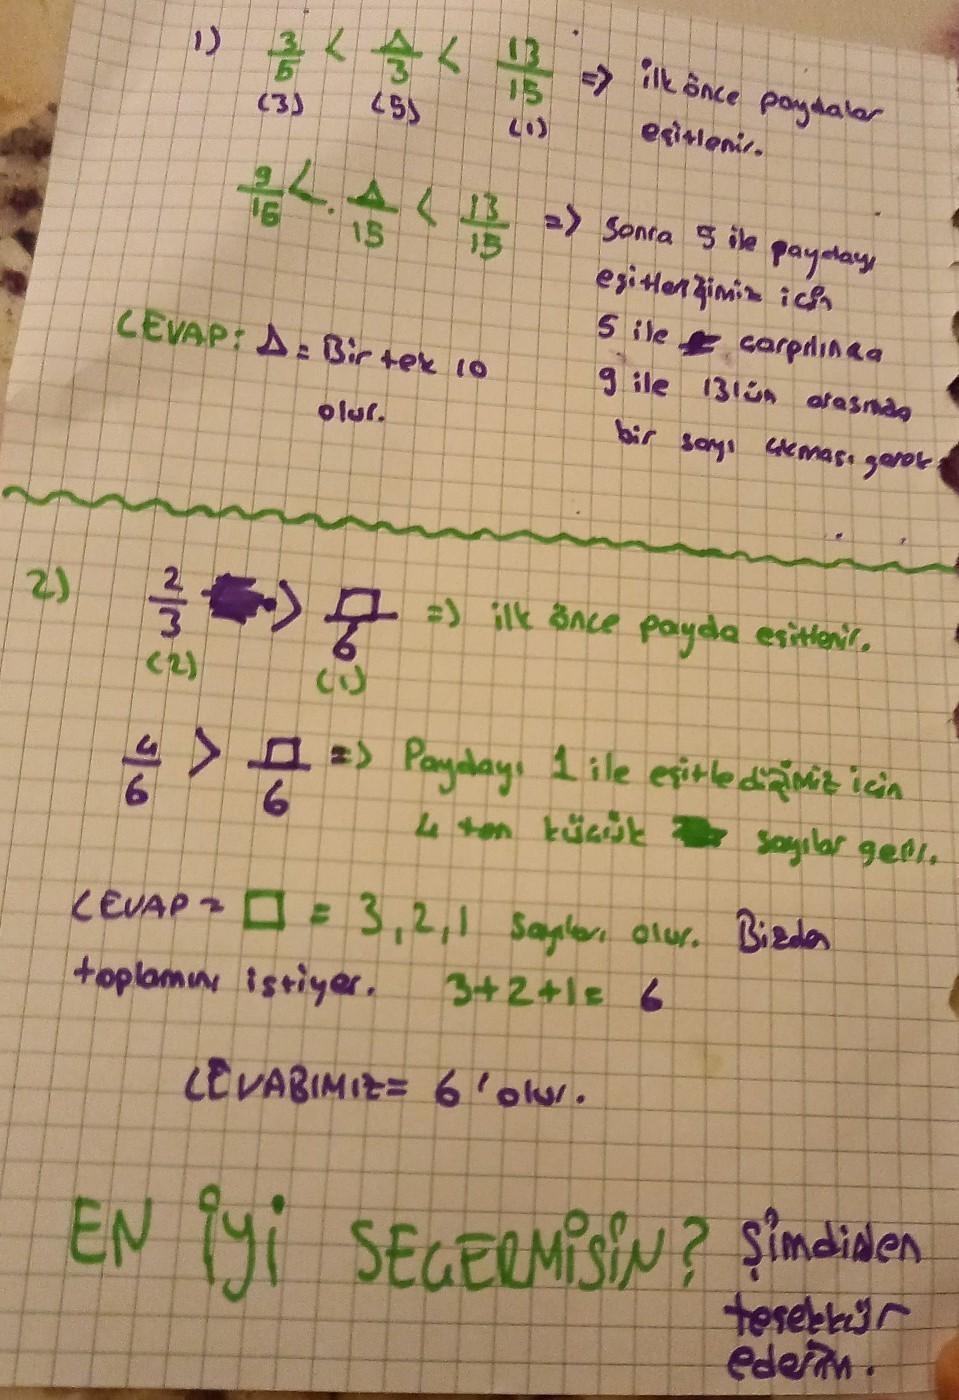 1) 3/5 < Δ/3 < 13/15 => ilk önce paydalar
(3) (5) (1) eşitlenir.
9/15 < Δ/15 < 13/15 => Sonra 5 ile paydayı
eşitlerğimiz için
5 ile çarpılınca
9 ile 13'ün arasında
bir sayı çıkması gerek.
CEVAP: Δ = Bir tek 10
olur.
2) 2/3 > □/6 => ilk önce payda eşitlenir.
(2) (1)
4/6 > □/6 => Paydayı 1 ile eşitlediğimiz için
4 ten küçük sayılar gelir.
CEVAP = □ = 3, 2, 1 sayıları olur. Bizden
toplamını istiyor. 3+2+1= 6
CEVABIMIZ= 6'olur.
EN İYİ SEÇERMİSİN? Şimdiden
teşekkür
ederim.